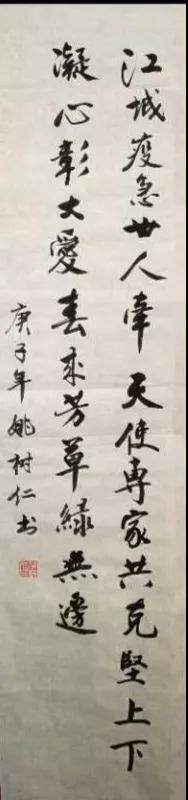 江城疫急世人牵天使専家共克堅上下
凝心彰大愛春来芳草緑無邊
庚子年姚树仁书